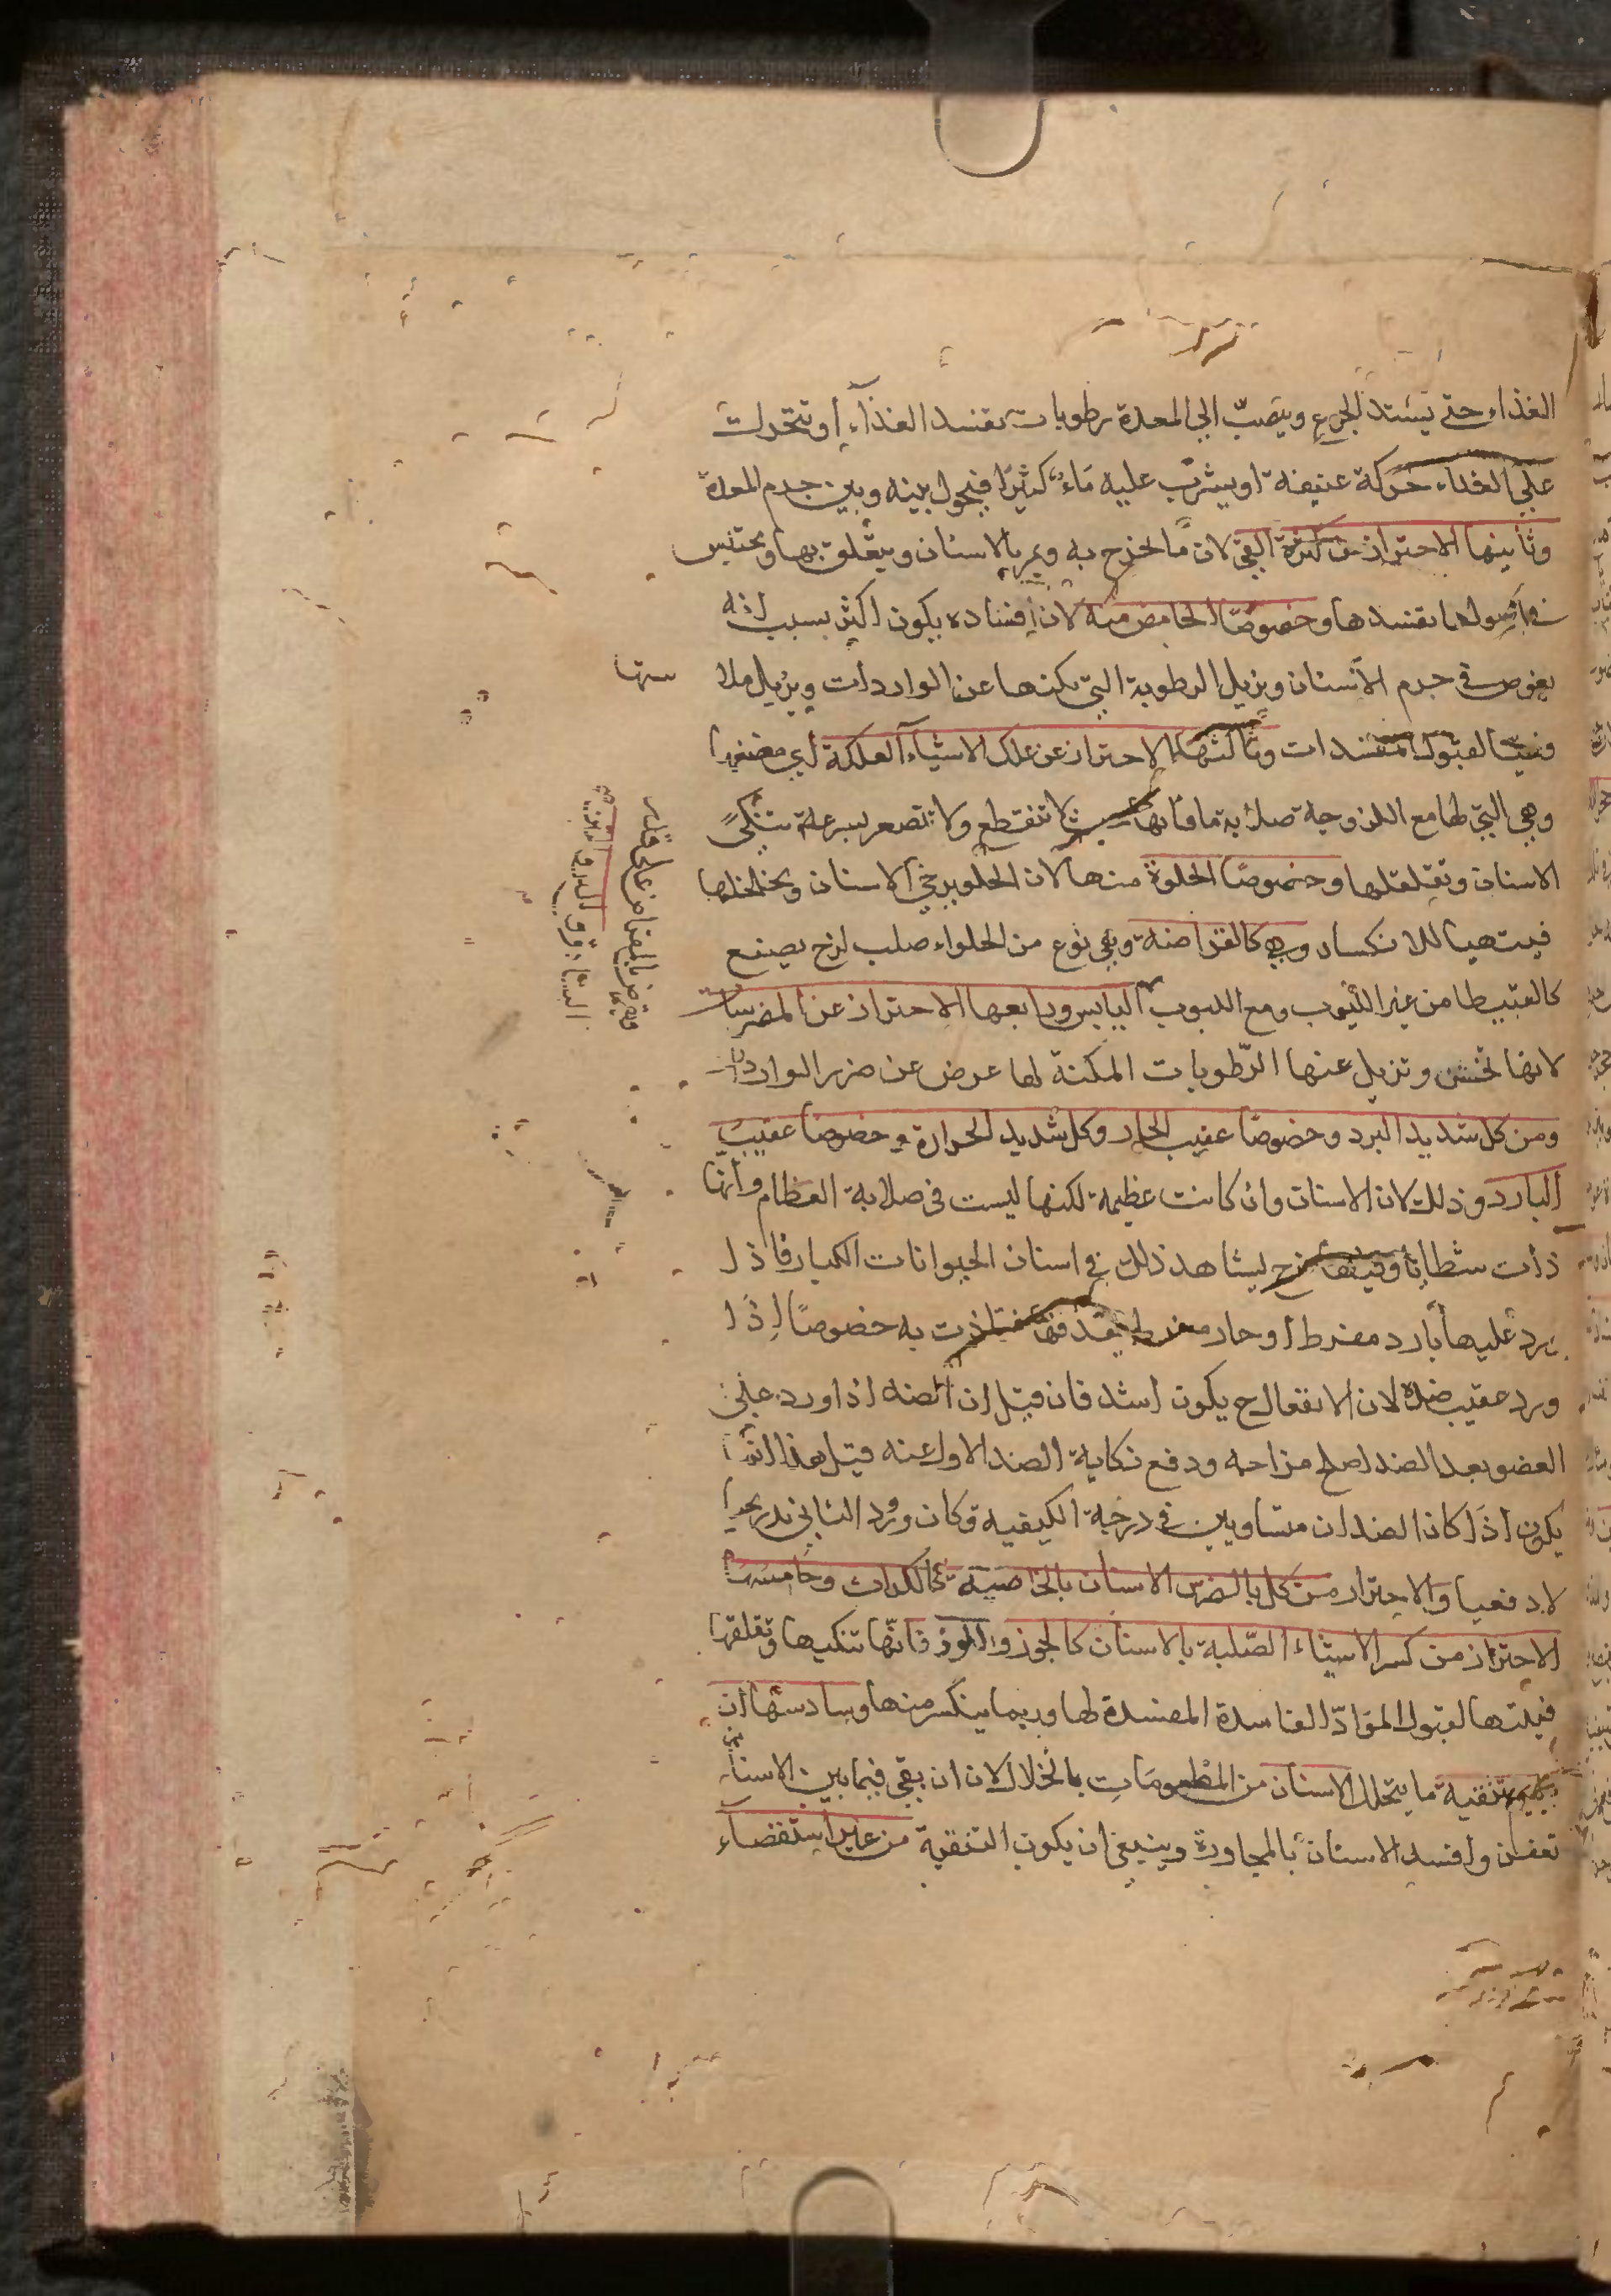 الغذاء حتى يشتد الجوع وينصبّ الى المعدة رطوبات تفسد الغذاء أو تتحرك
على الغذاء حركة عنيفة او يشرب عليه ماء كثيرا فيحول بينه وبين جرم المعدة
وثانيها الاحتراز عن كثرة القئ لان ما يخرج به ويمر بالاسنان ويتعلق بها ويحتبس
في اصولها يفسدها وخصوصًا الحامض منه لان افساده يكون اكثر بسبب انه
يغوص في جرم الاسنان ويزيل الرطوبة التي تكنها عن الواردات ويزيل ملا
ستها
فتهيأ لقبول المفسدات وثالثها الاحتراز عن علك الاشياء العلكة أي مضغها
وهي التي لها مع اللزوجة صلابة ما فانها لا تنقطع ولا تتصغر بسرعة تنكي
الاسنان وتقلقلها وخصوصًا الحلوة منها لان الحلو يرخي الاسنان ويخلخلها
فيتهيأ للانكسار وهي كالقراضة وهي نوع من الحلواء صلب لزج يصنع
كالقبيط من غير اللبوب ومع اللبوب اليابس ورابعها الاحتراز عن المضرسات
لانها تخشن وتزيل عنها الرّطوبات المكنة لها عرض عن ضرر الواردات
ومن كل شديد البرد وخصوصًا عقيب الحار وكل شديد الحرارة وخصوصًا عقيب
البارد وذلك لان الاسنان وان كانت عظيمة لكنها ليست في صلابة العظام وانها
ذات شظايا يشاهد ذلك في اسنان الحيوانات الكبار فاذا
يرد عليها بارد مفرط أو حار مفرط به خصوصًا اذا
ورد عقيب ضده لان الانفعال ح يكون اشد فان قيل ان الضد اذا ورد على
العضو بعد الضد اصلح مزاجه ودفع نكاية الضد الاول عنه قيل هذا انما
يكون اذا كان الضدان متساويين في درجة الكيفية وكان ورود الثاني تدريجيا
لا دفعيا والاحتراز من كل ما يضرّ الاسنان بالخاصية كالكراث وخامسها
الاحتراز من كسر الاشياء الصّلبة بالاسنان كالجوز واللوز فانّها تنكيها وتقلقلها
فيتهيأ لقبول الموادّ الفاسدة المفسدة لها وربما ينكسر منها وسادسها ان
تنقية ما يتخلل الاسنان من المطعومات بالخلال لان ان بقي فيما بين الاسنان
تعفن وافسد الاسنان بالمجاورة وينبغي ان يكون التنقية من غير استقصاء